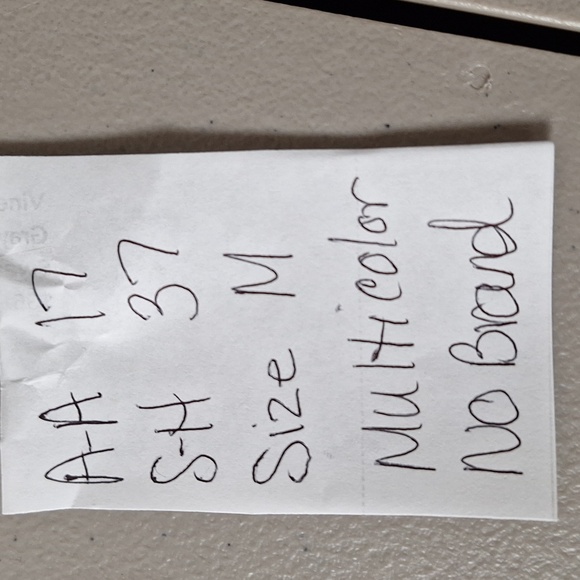 A-A 17
S-H 37
Size M
Multicolor
No Brand